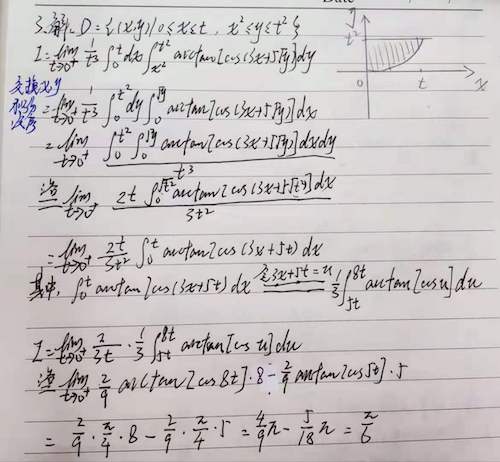 Date
3.解. D={(x,y)|0≤x≤t, x²≤y≤t²}
I=lim_{t→0⁺} 1/t³ ∫₀^t dx ∫_{x²}^{t²} arctan[cos(3x+5√y)]dy
交换x,y
积分
次序
=lim_{t→0⁺} 1/t³ ∫₀^{t²} dy ∫₀^{√y} arctan[cos(3x+5√y)]dx
=lim_{t→0⁺} ∫₀^{t²} ∫₀^{√y} arctan[cos(3x+5√y)]dxdy / t³
洛 lim_{t→0⁺} 2t ∫₀^{√t²} arctan[cos(3x+5√t²)]dx / 3t²
=lim_{t→0⁺} 2t/3t² ∫₀^t arctan[cos(3x+5t)]dx
其中, ∫₀^t arctan[cos(3x+5t)dx 令3x+5t=u 1/3 ∫_{5t}^{8t} arctan[cosu]du
I=lim_{t→0⁺} 2/3t · 1/3 ∫_{5t}^{8t} arctan[cosu]du
洛 lim_{t→0⁺} 2/9 arctan[cos8t]·8 - 2/9 arctan[cos5t]·5
= 2/9 · π/4 · 8 - 2/9 · π/4 · 5 = 4/9 π - 5/18 π = π/6
y
t²
0
t
x